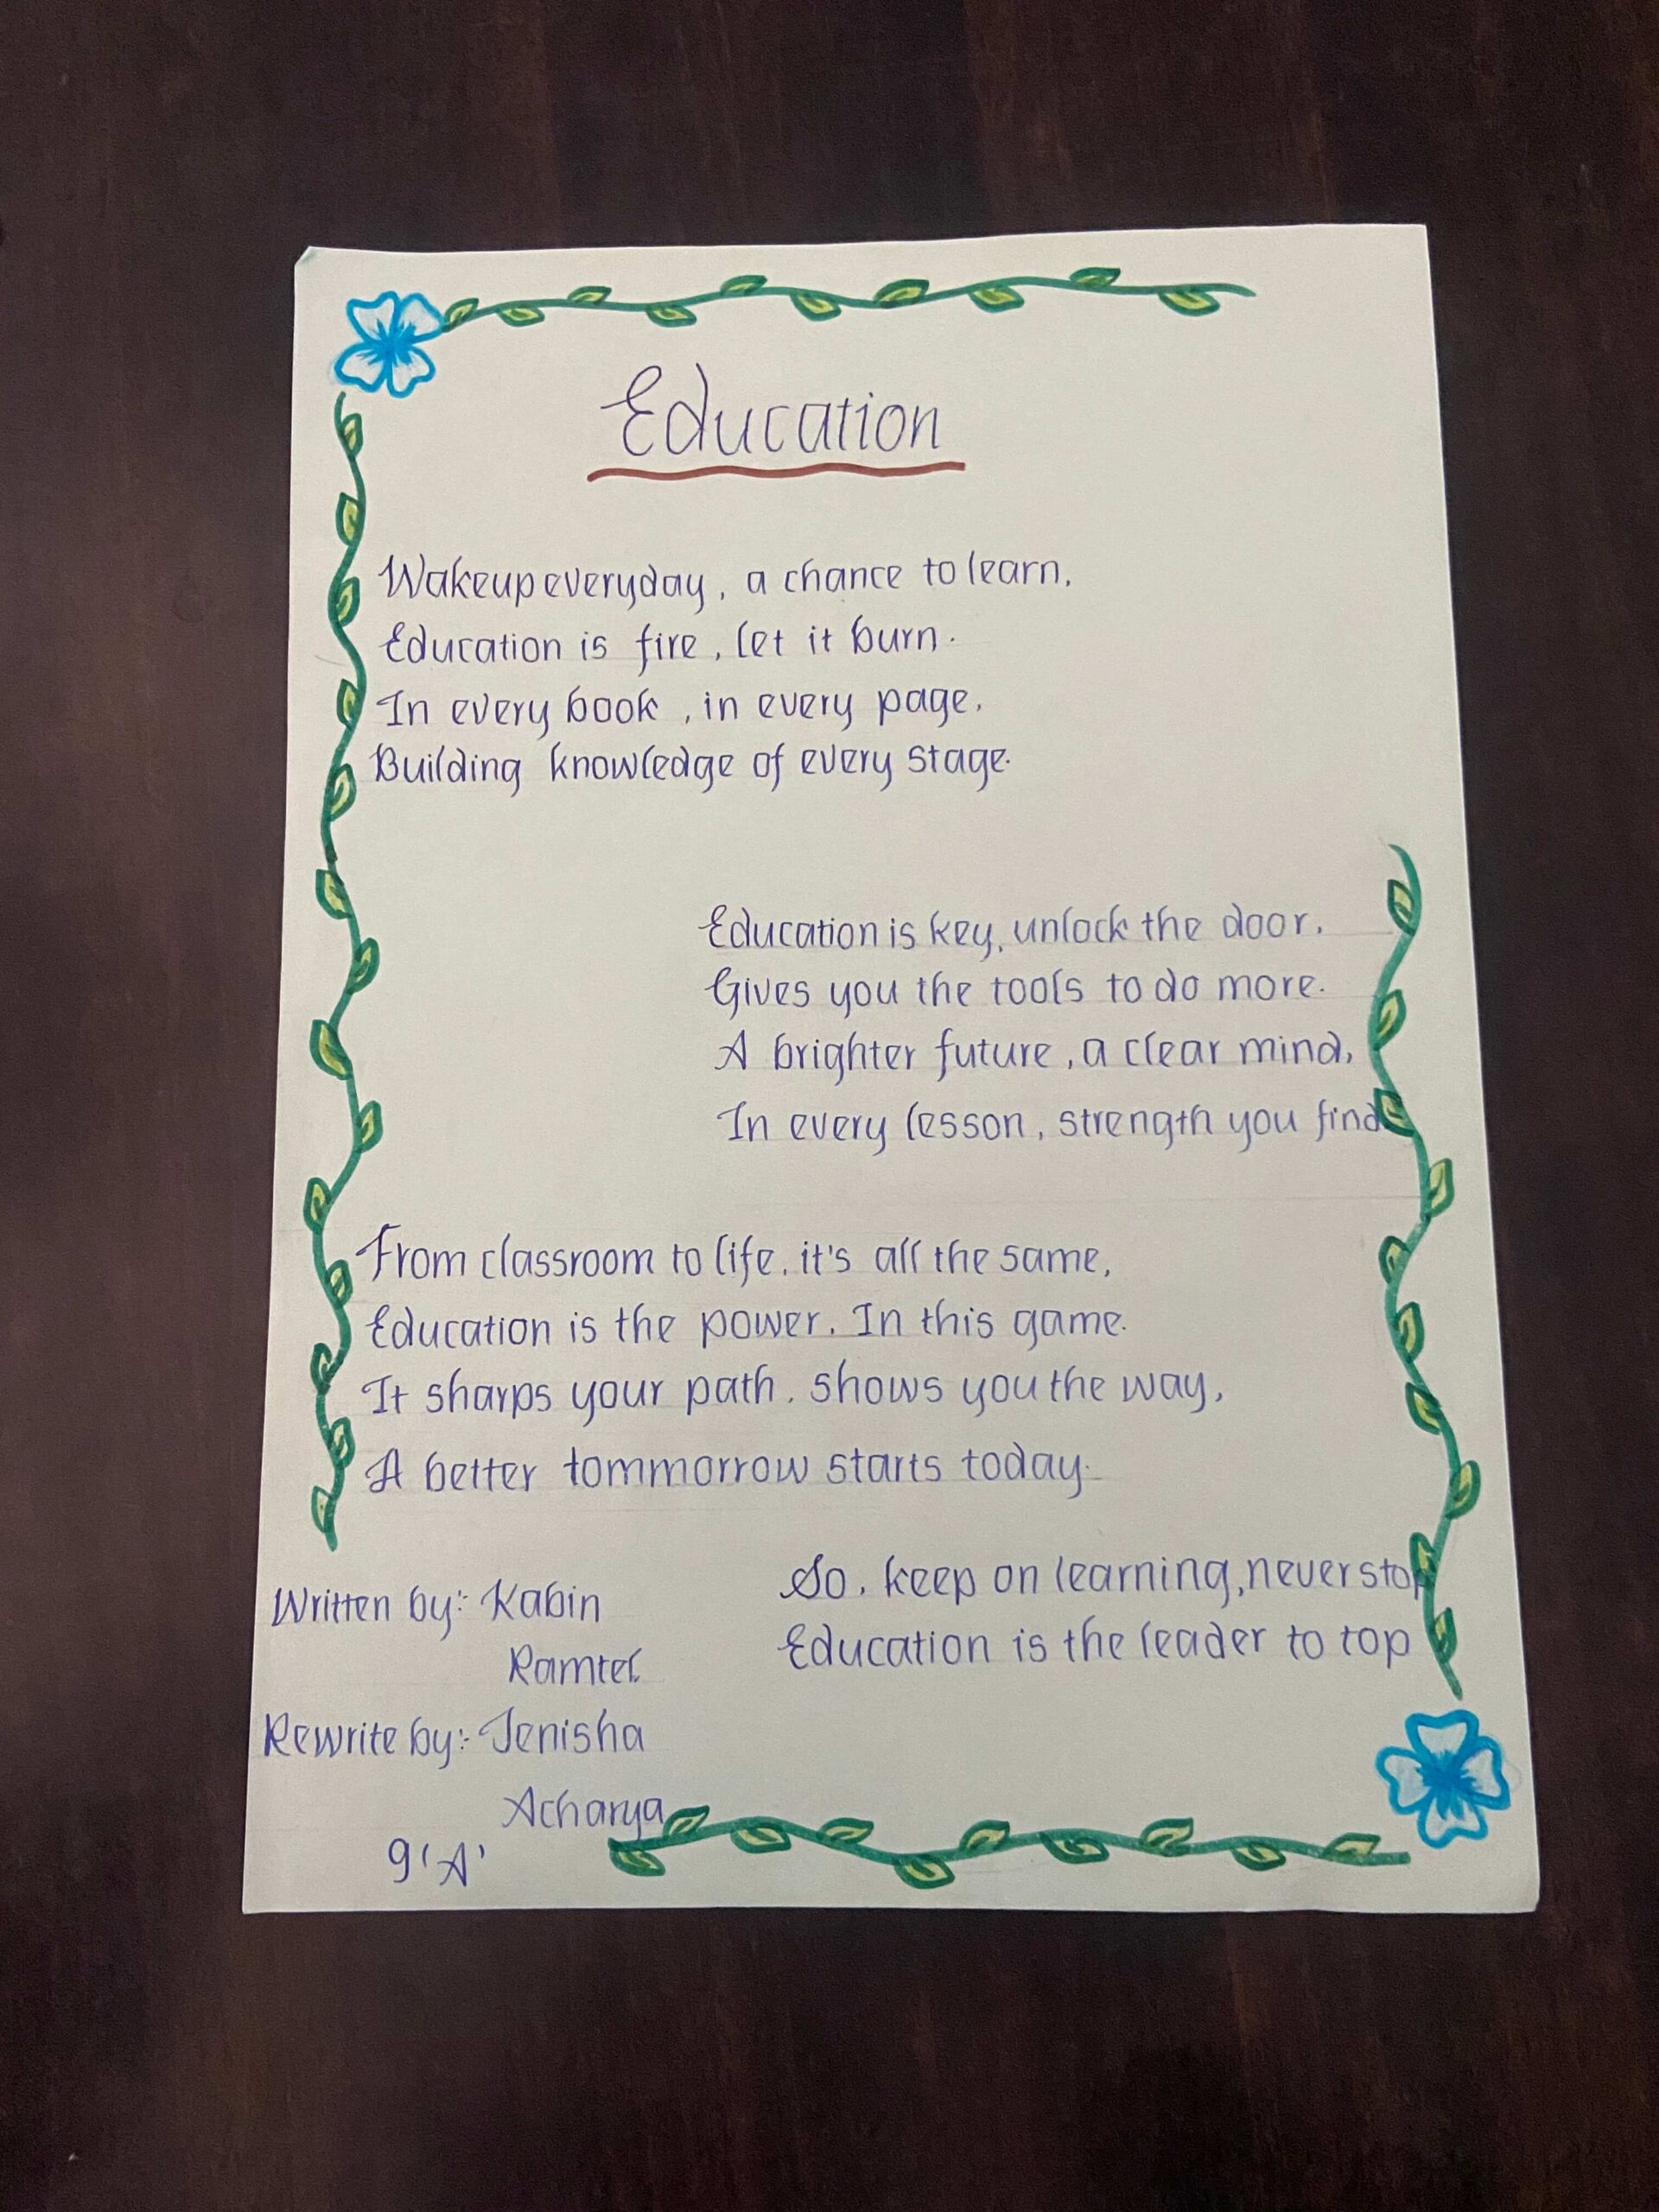 Education
Wakeup everyday, a chance to learn,
Education is fire, let it burn.
In every book, in every page,
Building knowledge of every stage.
Education is key, unlock the door,
Gives you the tools to do more.
A brighter future, a clear mind,
In every lesson, strength you find
From classroom to life, it's all the same,
Education is the power. In this game.
It sharps your path, shows you the way,
A better tommorrow starts today.
So, keep on learning, never stop
Education is the leader to top
Written by:- Kabin
Ramtel
Rewrite by:- Jenisha
Acharya
9 'A'